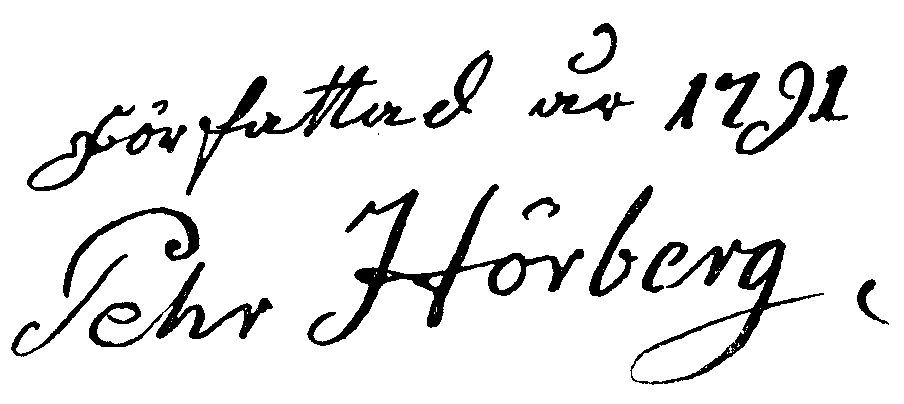 Författad år 1791
Pehr Hörberg.